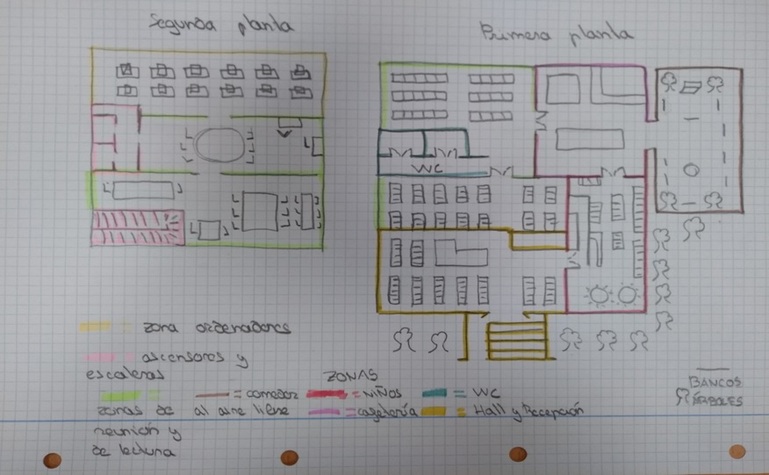 Segunda planta
Primera planta
WC
zona ordenadores
ascensores y
escaleras
ZONAS
zonas de
reunión y
de lectura
= comedor
al aire libre
= NIÑOS
= cafetería
= WC
= Hall y Recepción
BANCOS
ÁRBOLES